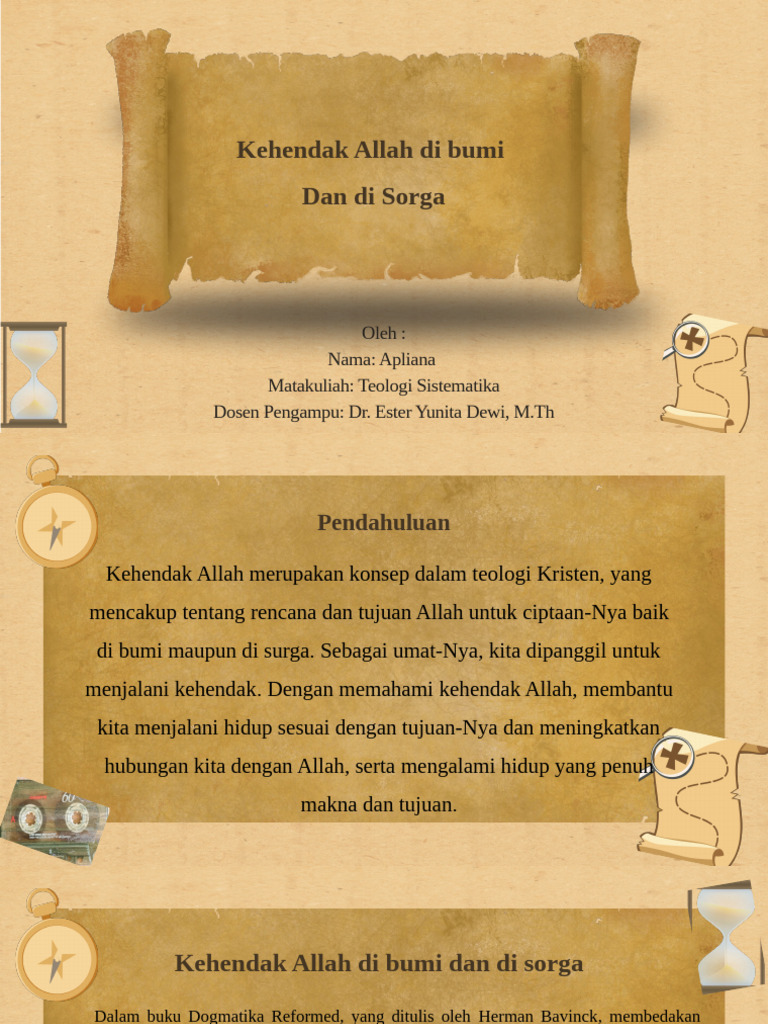 Kehendak Allah di bumi
Dan di Sorga
Oleh :
Nama: Apliana
Matakuliah: Teologi Sistematika
Dosen Pengampu: Dr. Ester Yunita Dewi, M.Th
Pendahuluan
Kehendak Allah merupakan konsep dalam teologi Kristen, yang
mencakup tentang rencana dan tujuan Allah untuk ciptaan-Nya baik
di bumi maupun di surga. Sebagai umat-Nya, kita dipanggil untuk
menjalani kehendak. Dengan memahami kehendak Allah, membantu
kita menjalani hidup sesuai dengan tujuan-Nya dan meningkatkan
hubungan kita dengan Allah, serta mengalami hidup yang penuh
makna dan tujuan.
60
Kehendak Allah di bumi dan di sorga
Dalam buku Dogmatika Reformed, yang ditulis oleh Herman Bavinck, membedakan